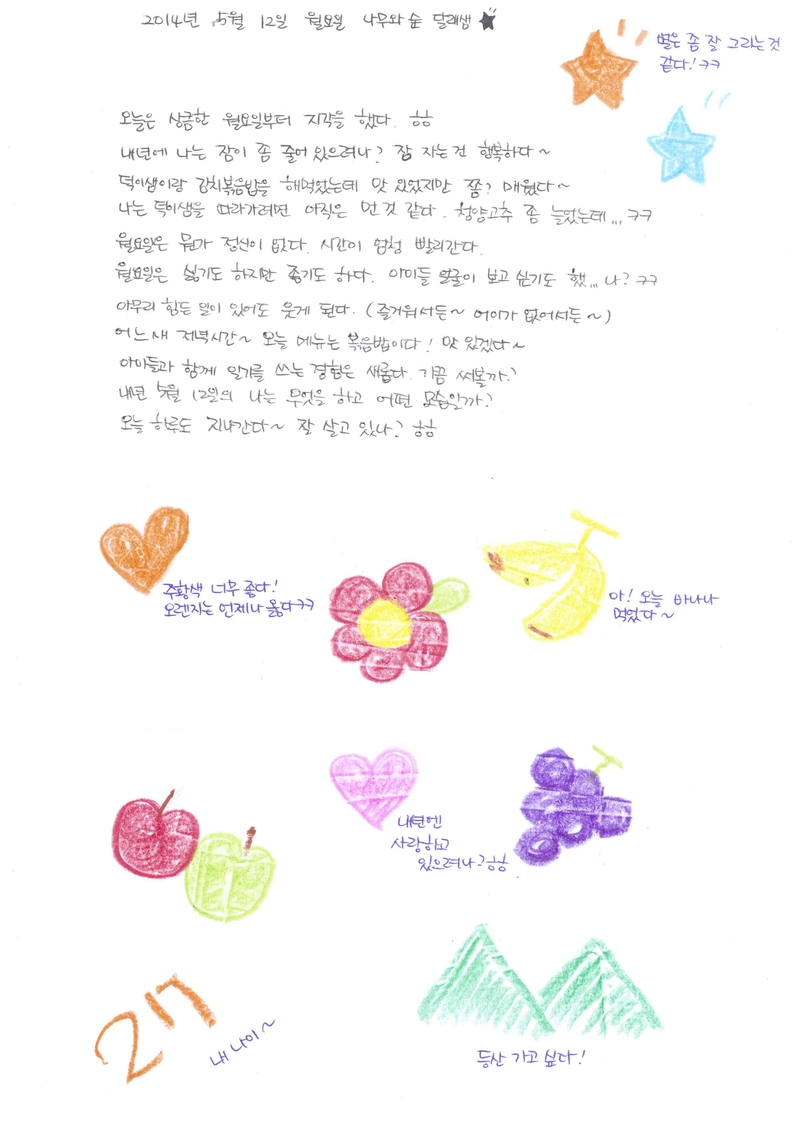 2014년 5월 12일 월요일 나무와 숲 달래쌤
별은 좀 잘 그리는 것
같다! ㅋㅋ
오늘은 상큼한 월요일부터 지각을 했다. ㅎㅎ
내년에 나는 잠이 좀 줄어 있으려나? 잠 자는 건 행복하다~
덕이쌤이랑 김치볶음밥을 해먹었는데 맛 있었지만 쫌? 매웠다~
나는 덕이쌤을 따라가려면 아직은 먼 것 같다. 청양고추 좀 늘었는데... ㅋㅋ
월요일은 뭔가 정신이 없다. 시간이 엄청 빨리간다.
월요일은 싫기도 하지만 좋기도 하다. 아이들 얼굴이 보고 싶기도 했... 나? ㅋㅋ
아무리 힘든 일이 있어도 웃게 된다. (즐거워서든~ 어이가 없어서든~)
어느새 저녁시간~ 오늘 메뉴는 볶음밥이다! 맛 있겠다~
아이들과 함께 일기를 쓰는 경험은 새롭다. 가끔 써볼까?
내년 5월 12일의 나는 무엇을 하고 어떤 모습일까?
오늘 하루도 지나간다~ 잘 살고 있나? ㅎㅎ
주황색 너무 좋다!
오렌지는 언제나 옳다ㅋㅋ
아! 오늘 바나나
먹었다~
내년엔
사랑하고
있으려나? ㅎㅎ
27
내 나이~
등산 가고 싶다!